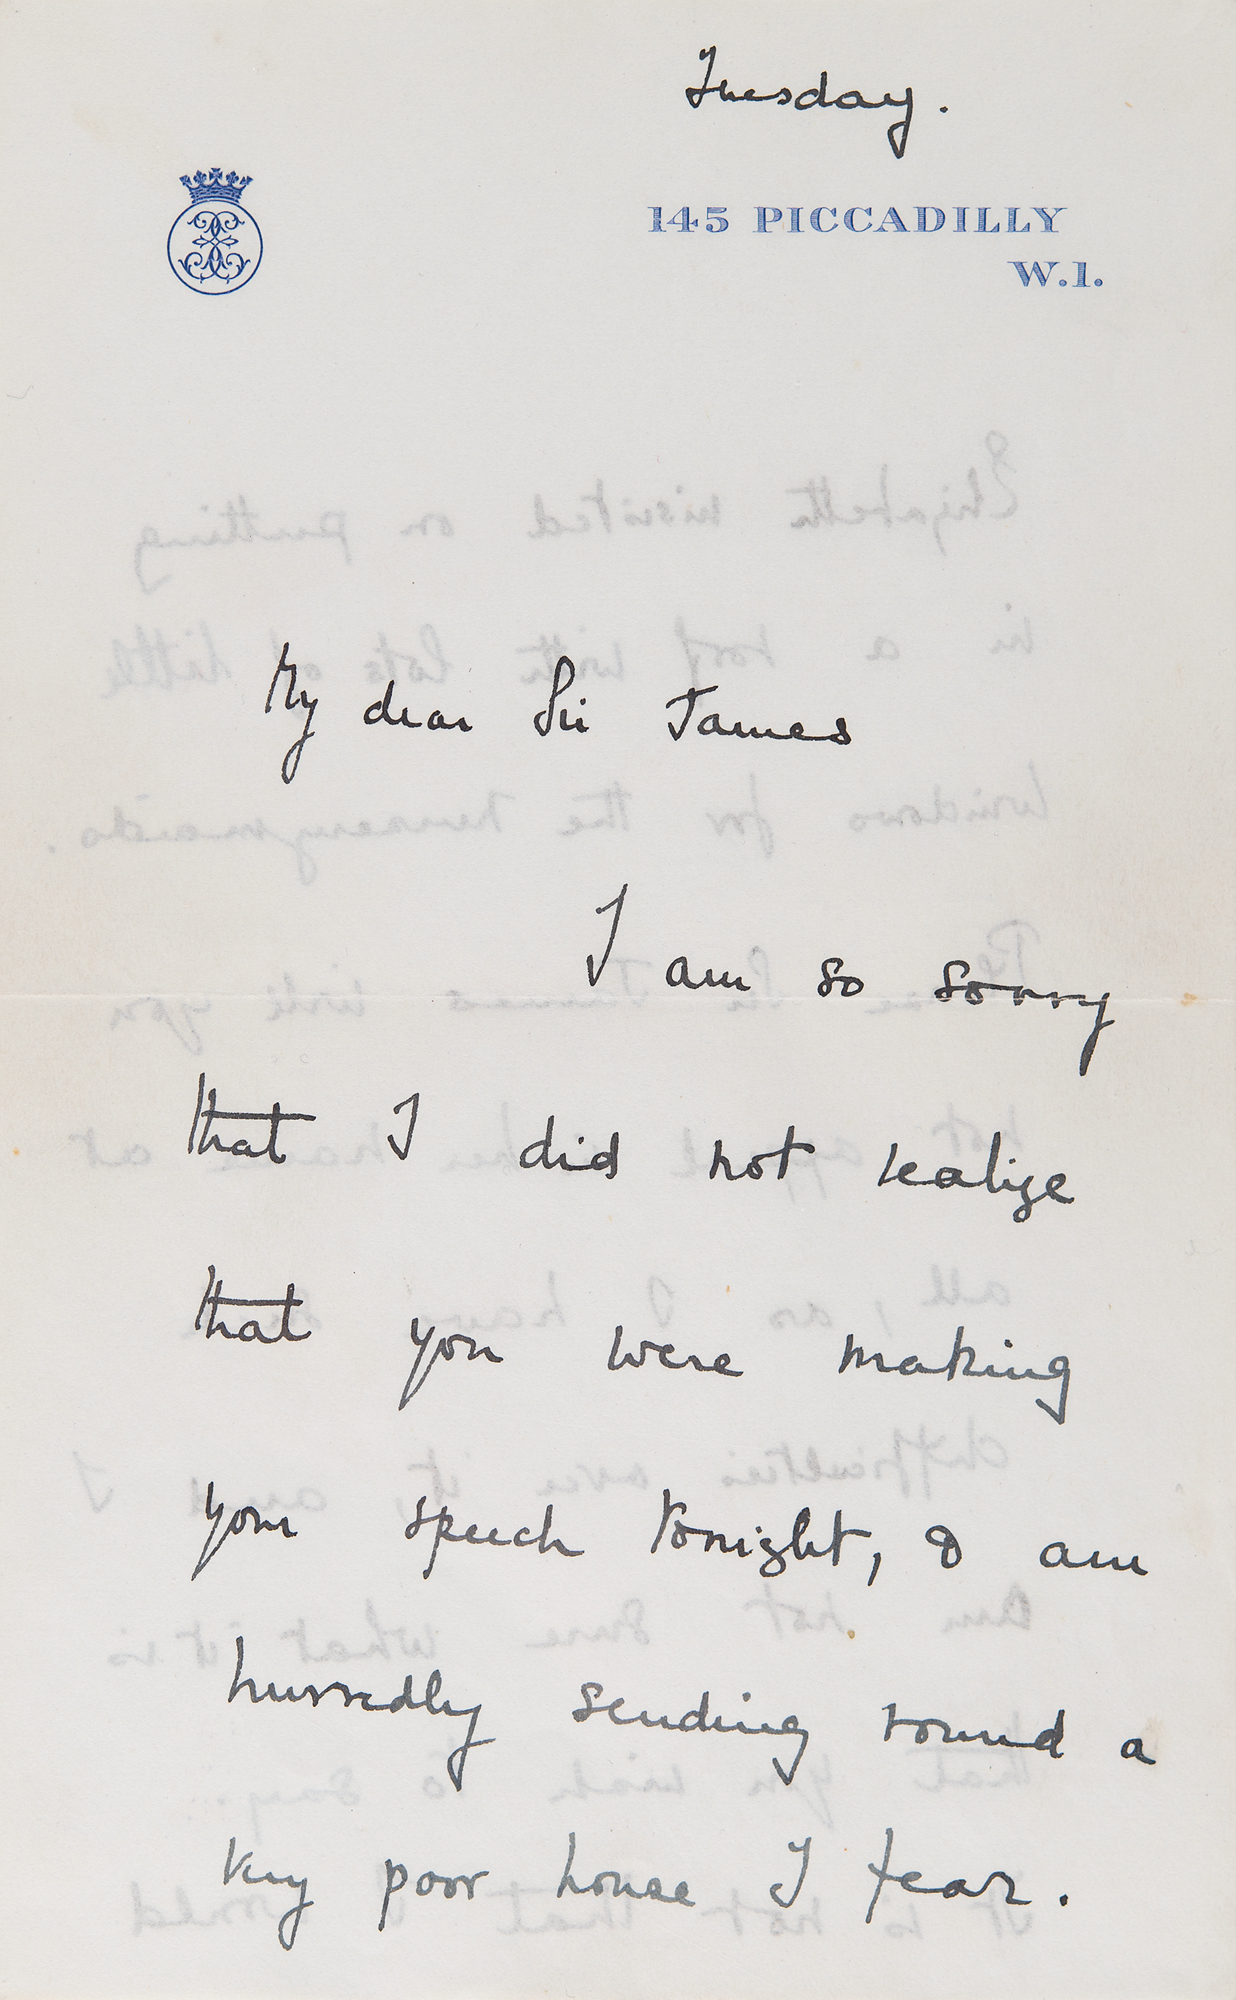 Tuesday.
145 PICCADILLY
W.1.
My dear Sir James
I am so sorry
that I did not realize
that you were making
your speech tonight, & am
hurredly sending round a
very poor house I fear.